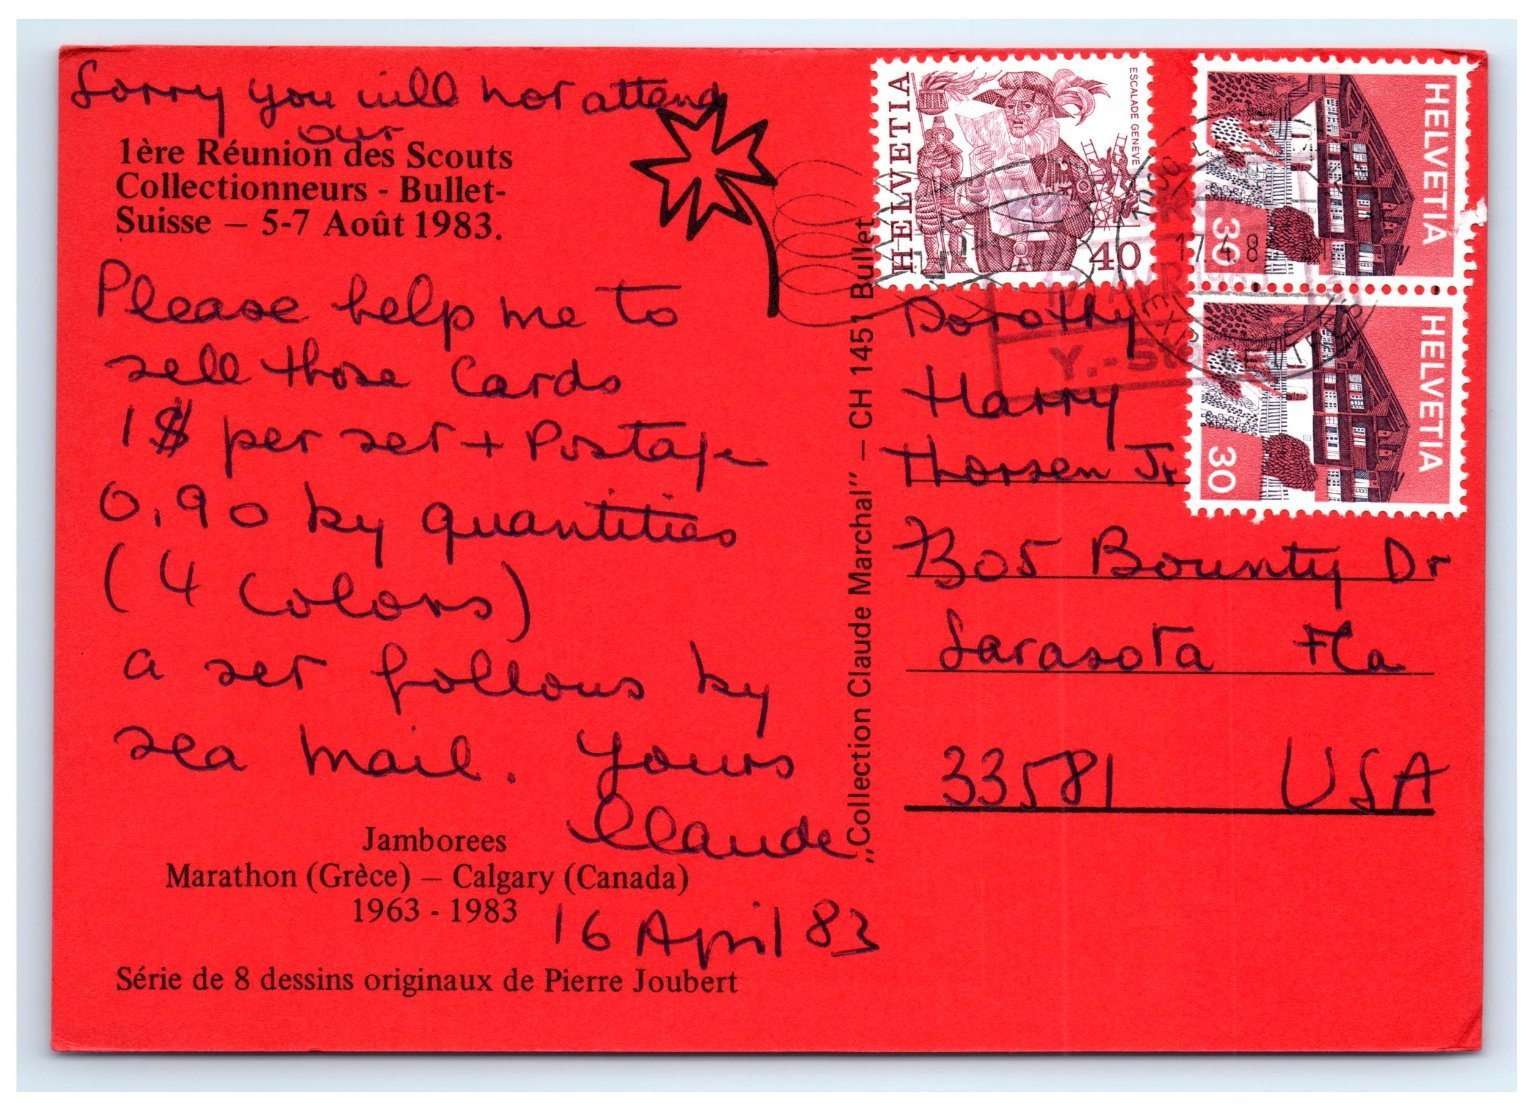 Sorry you will not attend
our
1ère Réunion des Scouts
Collectionneurs - Bullet-
Suisse – 5-7 Août 1983.
Please help me to
sell those Cards
1$ per set + Postage
0,90 by quantities
(4 Colors)
a set follows by
sea mail. Yours
Claude
Jamborees
Marathon (Grèce) – Calgary (Canada)
1963 - 1983
16 April 83
Série de 8 dessins originaux de Pierre Joubert
„Collection Claude Marchal” – CH 1451 Bullet
HELVETIA
ESCALADE GENÈVE
40
HELVETIA
30
HELVETIA
30
17.4.8
Dorothy
Harry
Thorsen Jr
305 Bounty Dr
Sarasota Fla
33581 USA